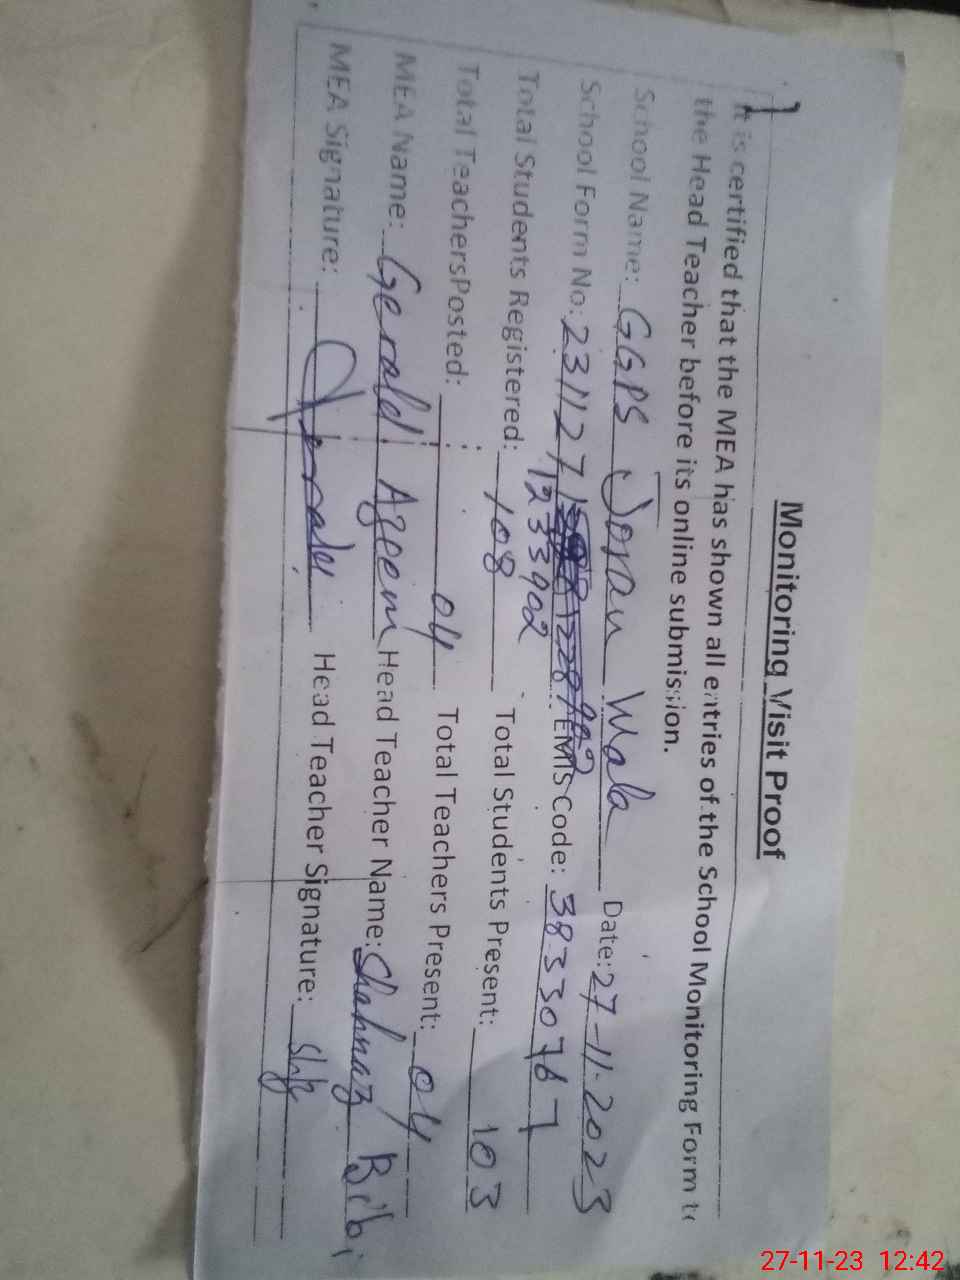 Monitoring Visit Proof
It is certified that the MEA has shown all entries of the School Monitoring Form to
the Head Teacher before its online submission.
School Name: GGPS Joyan Wala Date: 27-11-2023
School Form No: 231127 EMIS Code: 38330767
1233902
Total Students Registered: 108 Total Students Present: 103
Total TeachersPosted: 04 Total Teachers Present: 04
MEA Name: Gerald Azeem Head Teacher Name: Shahnaz Bibi
MEA Signature: Head Teacher Signature:
27-11-23 12:42